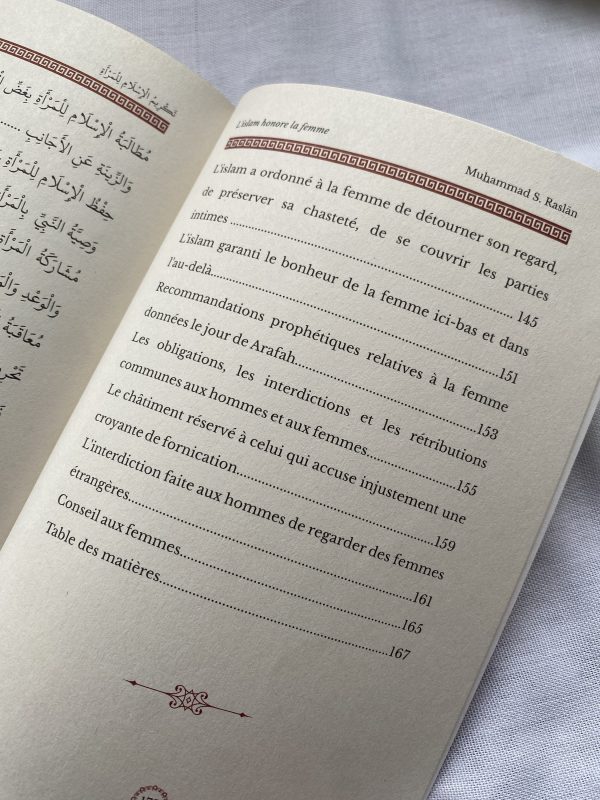 تَكْرِيمُ الْإِسْلَامِ لِلْمَرْأَةِ
مُطَالَبَةُ الْإِسْلَامِ لِلْمَرْأَةِ بِغَضِّ
وَالزِّينَةِ عَنِ الْأَجَانِبِ ......
حِفْظُ الْإِسْلَامِ لِلْمَرْأَةِ
وَصِيَّةُ النَّبِيِّ بِالْمَرْأَةِ
مُشَارَكَةُ الْمَرْأَةِ
وَالْوَعْدِ
مُعَاقَبَةُ
L'islam honore la femme
Muhammad S. Raslān
L'islam a ordonné à la femme de détourner son regard,
de préserver sa chasteté, de se couvrir les parties
intimes ........ 145
L'islam garanti le bonheur de la femme ici-bas et dans
l'au-delà........151
Recommandations prophétiques relatives à la femme
données le jour de Arafah........153
Les obligations, les interdictions et les rétributions
communes aux hommes et aux femmes........155
Le châtiment réservé à celui qui accuse injustement une
croyante de fornication........159
L'interdiction faite aux hommes de regarder des femmes
étrangères........161
Conseil aux femmes........165
Table des matières........167